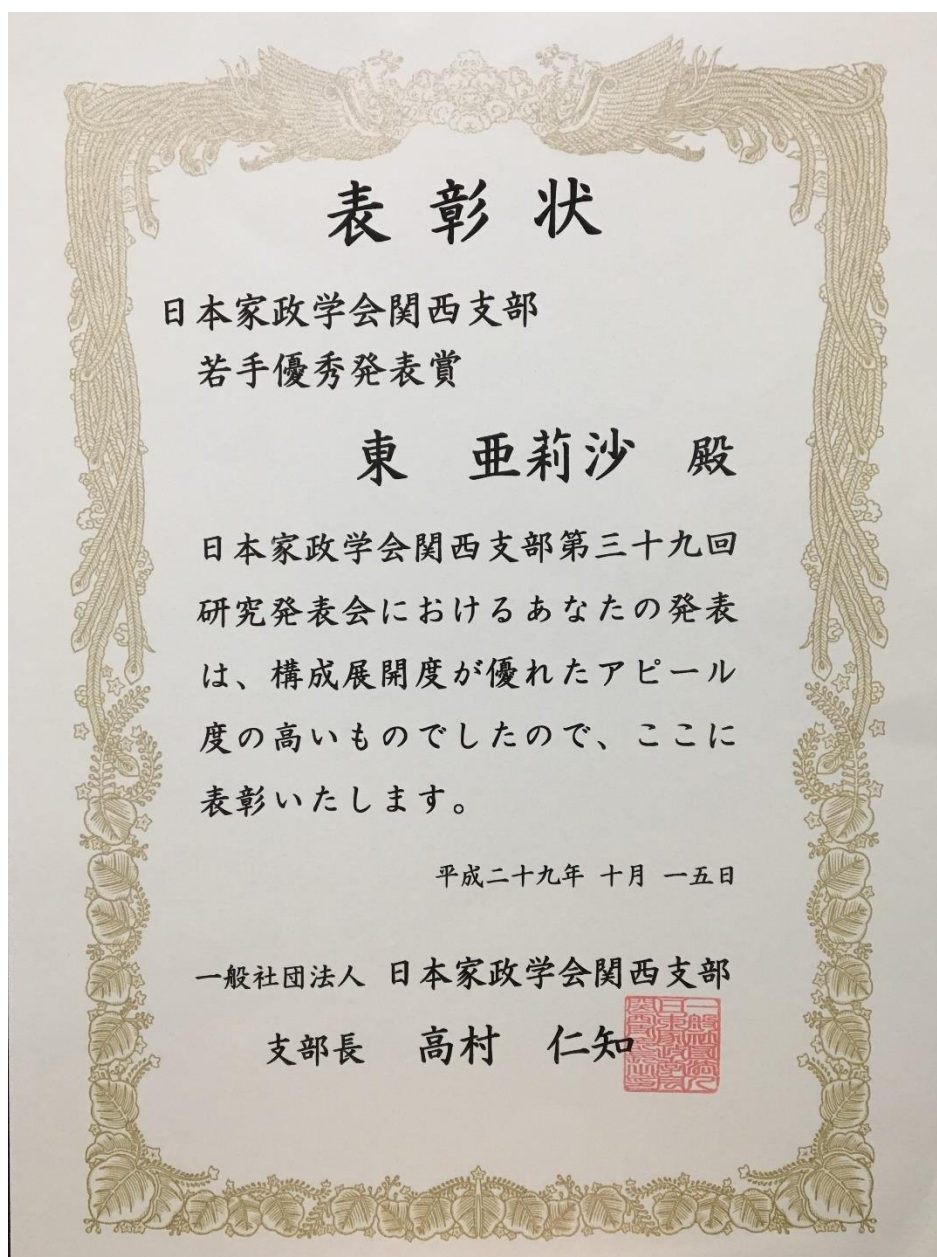 表彰状
日本家政学会関西支部
若手優秀発表賞
東 亜莉沙 殿
日本家政学会関西支部第三十九回
研究発表会におけるあなたの発表
は、構成展開度が優れたアピール
度の高いものでしたので、ここに
表彰いたします。
平成二十九年 十月 一五日
一般社団法人 日本家政学会関西支部
支部長 高村 仁知